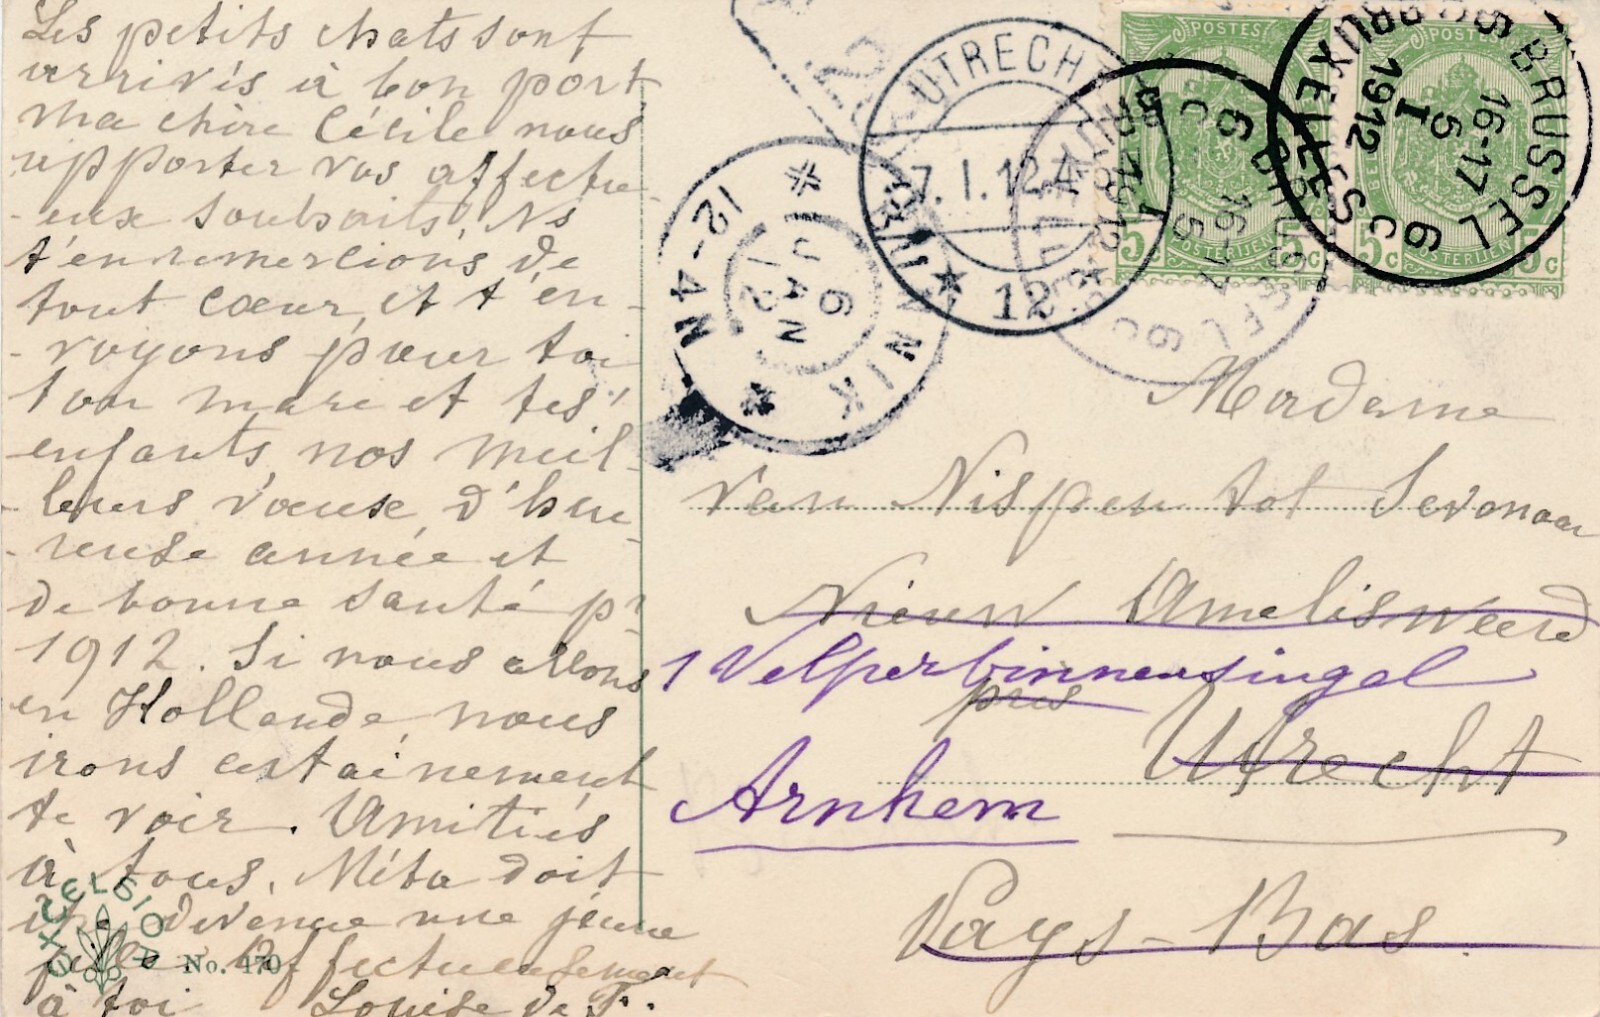 Les petits chats sont
arrivés à bon port
ma chère Cécile nous
apporter vos affectu-
-eux souhaits. Ns
t'en remercions de
tout cœur, et t'en-
-voyons pour toi
ton mari et tes
enfants, nos meil-
-leurs vœux d'heu-
-reuse année et
de bonne santé pr
1912. Si nous allons
en Hollande, nous
irons certainement
te voir. Amitiés
à tous. Méta doit
être devenue une jeune
fille. Affectueusement
à toi Louise de F.
EXCELSIOR
No. 470
UTRECHT
7.1.12
12
BUNNIK
6 JAN 12
12-4N
POSTES
5c POSTERIJEN 5c
POSTES
5c POSTERIJEN 5c
BRUSSEL 6C
16-17
5
I
1912
BRUXELLES 6C
Madame
van Nispen tot Sevenaar
Nieuw Amelisweerd
1 Velperbinnensingel
près
Utrecht
Arnhem
Pays-Bas